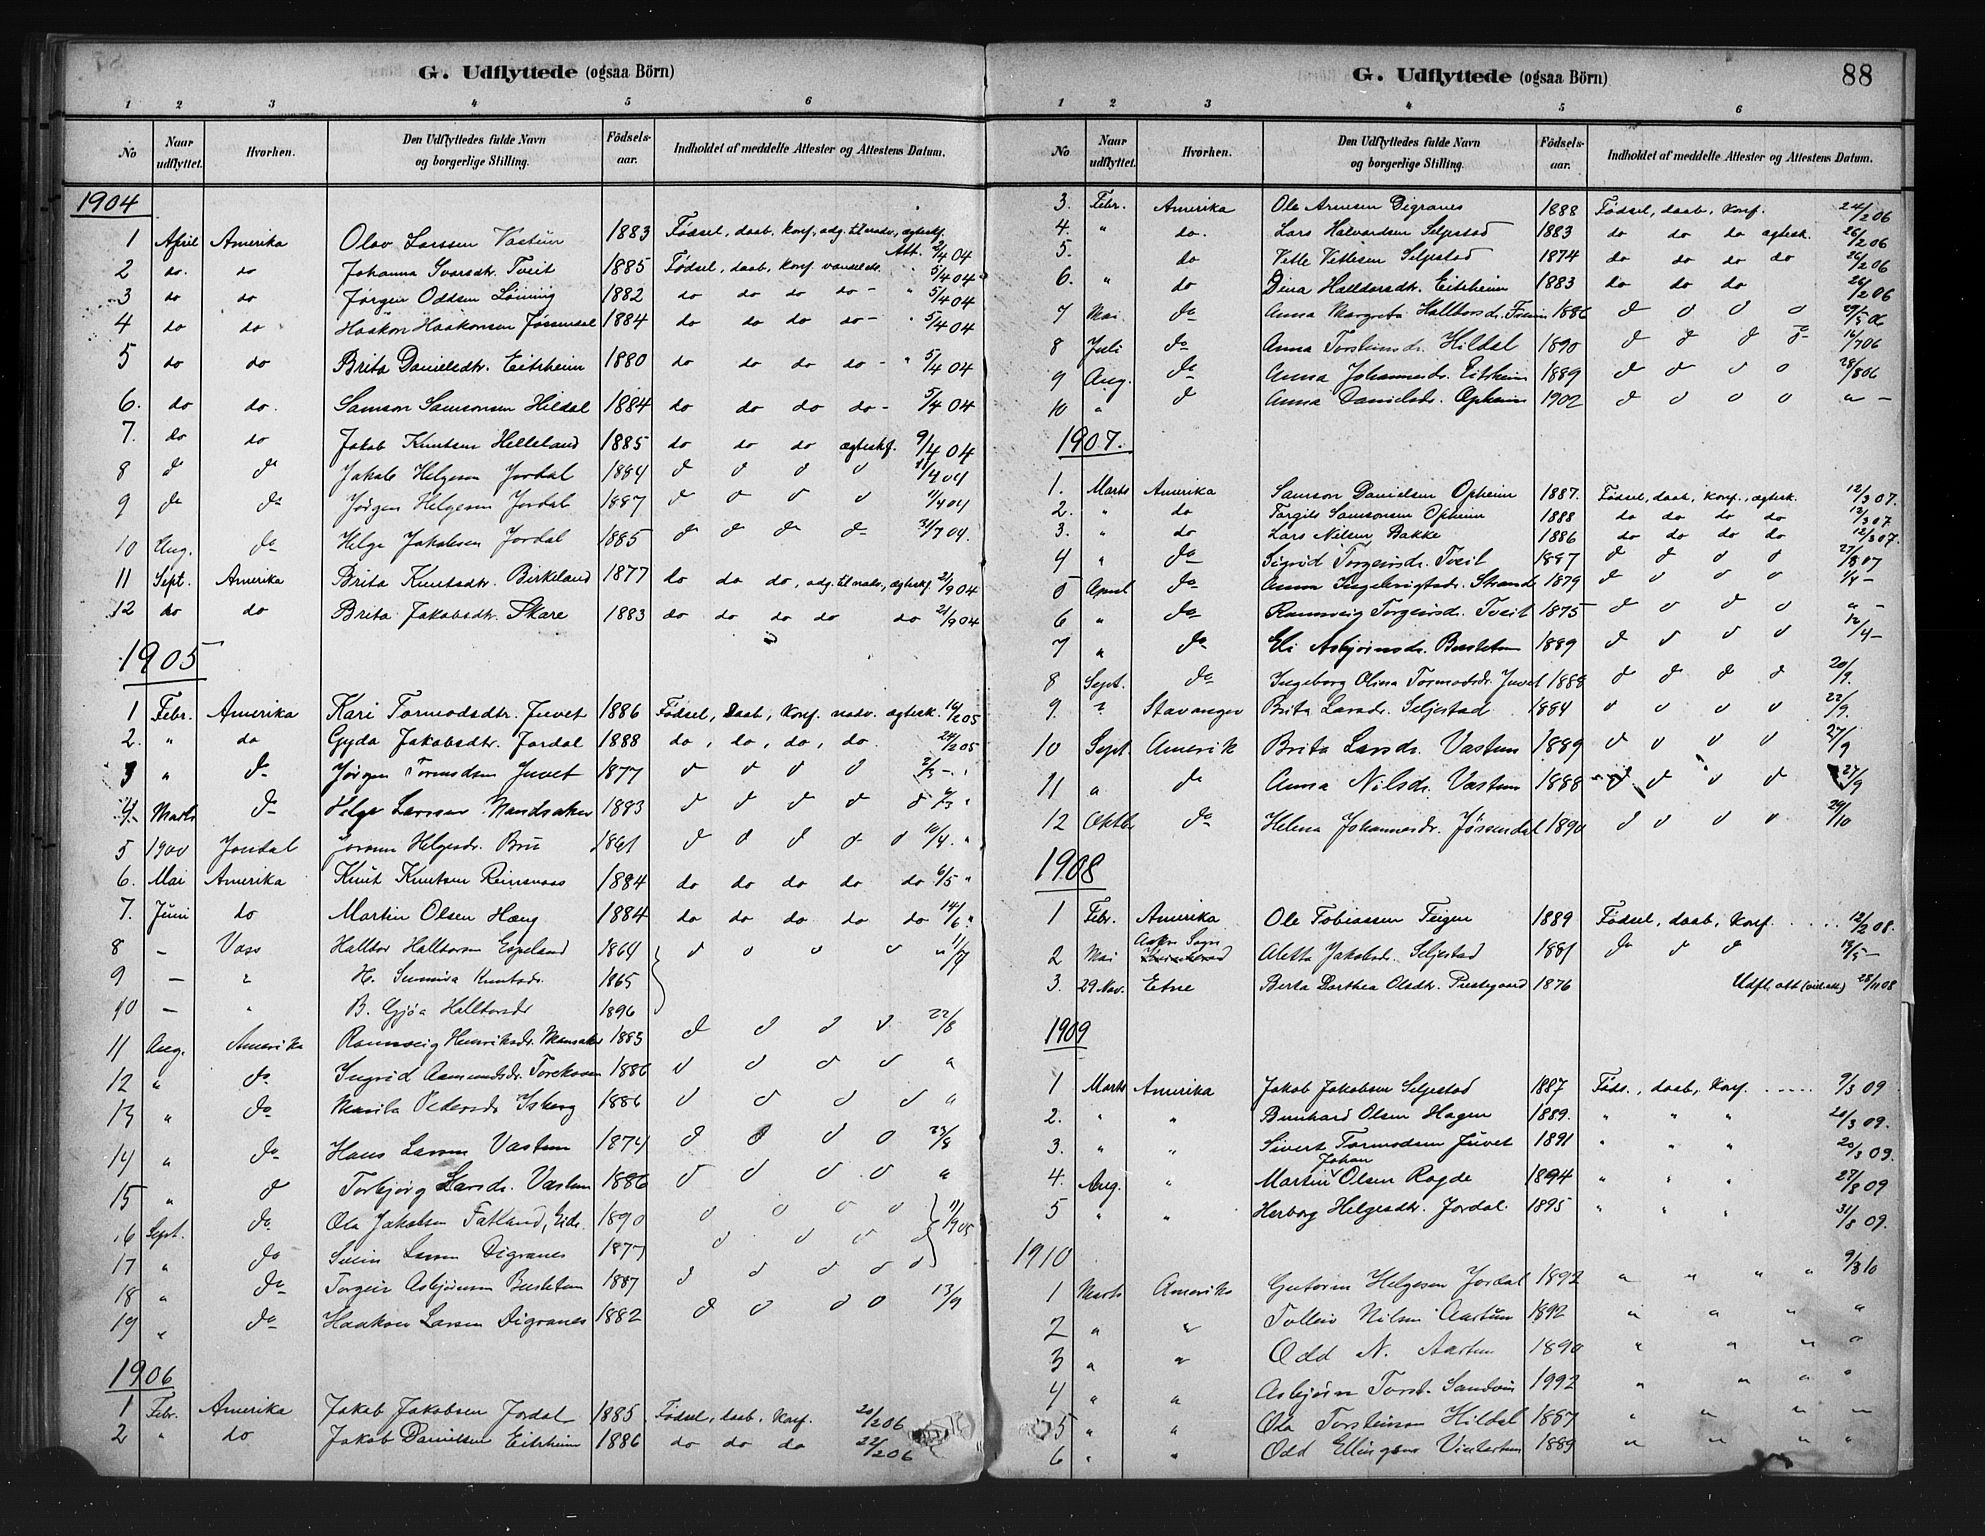 G. Udflyttede (ogsaa Börn)
1 2 3 4 5 6
No Naar udflyttet. Hvorhen. Den Udflyttedes fulde Navn og borgerlige Stilling. Födsels-aar. Indholdet af meddelte Attester og Attestens Datum.
1904
1 April Amerika Olav Larssen Vastun 1883 Fødsel, daab, Konf, adg. til natv, ægteskf. Att. 2/4 04
2 do. do Johanna Svarsdtr. Tveit 1885 Fødsel, daab, Konf vandel do. " 5/4 04
3 do do Jørgen Oddsen Lønning 1882 do do do do - " 5/4 04
4 do do Haakon Haakonsen Jøsendal 1884 do do do do - " 5/4 04
5 do do Brita Danielsdtr. Eitrheim 1880 do do do do - " 5/4 04
6. do do. Samson Samsonsen Hildal 1884 do do do do - 5/4 04
7. do do Jakob Knutsen Helleland 1885 do do do ægteskf. 9/4 04
8 d d Jakob Helgesen Jordal 1884 d d d d 11/4 04
9 do do Jørgen Helgesen Jordal 1887 d d d d 11/4 04
10 Aug. do Helge Jakobsen Jordal 1885 d d d do 31/7 04.
11 Sept. Amerika Brita Knutsdtr. Birkeland 1877 do do do, adg. til natv, ægteskf 21/9 04
12 do do Brita Jakobsdtr. Skare 1883 do do do do do 21/9 04
1905
1 Febr. Amerika Kari Tormodsdtr. Juvet 1886 Fødsel, Daab, Konf. natv. ægtesk. 16/2 05
2. " do Gyda Jakobsdtr. Jordal 1888 do, do, do, do. 24/2 05
3 " do Jørgen Tormodsen Juvet 1877 d d d d 2/3 - "
4 Marts do Helge Larssen Mandsaker 1883 d d d d d /3 "
5 1900 Jondal Helgesdr. Bru d d d d d 10/4. "
6. Mai Amerika Knut Knutsen Reinsnaas 1884 do do do do do 6/5 "
7. Juni do Martin Olsen Hæng 1884 do do do do do 14/6 "
8 - Voss Hallbor Hallborsen Espeland 1864 d d d d " 11/7
9 - " H. Sunniva Knutsdr. 1865
10 - " B. Gjøa Hallborsdr 1896
11 Aug. Amerika Rannveig Henriksdr. Mansaker 1883 d d d d 22/8
12 " do Ingrid Aamundsdr. 1886 d d d d "
13 " do Marita Pedersdr Isberg 1886 d d d d "
14 " do Hans Larsen Vastun 1874 d d d d 23/8
15 " d Torbjørg Larsdr. Vastun 1886 d d d d "
16 Sept. do Ola Jakobsen Fatland, Eide. 1890 d d d d 11/9 05
17 " do Svein Larsen Digranes 1877 d d d d
18 " do Torgeir Asbjørnsen Busletun 1887 d d d d
19 " do Haakon Larsen Digranes 1882 d d d d 13/9
1906
1 Febr. Amerika Jakob Jakobsen Jordal 1885 Fødsel, daab, Konf. 20/2 06
2 " do Jakob Danielsen Eitrheim 1886 do do do 22/2 06
G. Udflyttede (ogsaa Börn) 88
1 2 3 4 5 6
No Naar udflyttet. Hvorhen. Den Udflyttedes fulde Navn og borgerlige Stilling. Födsels-aar. Indholdet af meddelte Attester og Attestens Datum.
3. Febr. Amerika Ole Arnesen Digranes 1888 Fødsel, daab, Konf. 24/2 06
4. " do. Lars Halvardsen Seljestad 1883 do do do ægtesk. 26/2 06
5. do Vetle Vetlesen Seljestad 1874 do do do do 26/2 06
6. " do Dina Halldorsdtr. Eitrheim 1883 do do do 26/2 06
7 Mai do Anna Margreta Hallborsdr. 1886 d d d d 29/5 06
8 Juli do Anna Torsteinsdr. Hildal 1890 d d d do 16/7 06
9 Aug. do Anna Johannesdr. Eitrheim 1889 d d d d 28/8 06
10 " d Anna Danielsdr. Opheim 1902 d d d d " -
1907.
1. Marts Amerika Samson Danielsen Opheim 1887. Fødsel, daab, Konf, ægtesk. 12/3 07.
2. " do Torgils Samsonsen Opheim 1888 do do do do 12/3 07
3. " do Lars Nilsen Bakke 1886 do do do do 12/3 07.
4 " do Sigrid Torgeirsdr. Tveit 1887 d d d d 27/3 07
5 April do Anna Ingebrigtsdr. Strand 1879 d d d d 4/4 -
6 " do Rannveig Torgeirsdr. Tveit 1875 d d d d " -
7 " do Eli Asbjørnsdr. Busletun 1889 d d d d 12/4 -
8 Sept. do Ingeborg Olina Tormodsdr. Juvet 1888 d d d d 20/9.
9. ? Stavanger Brita Larsdr. Seljestad. 1884 d d d d 22/9.
10 Sept Amerik Brita Larsdr. Vastun 1889 d d d d 27/9
11 " do Anna Nilsdr. Vastun 1888 d d d d 27/9
12 Oktbr do Helena Johannesdr. Jøsendal 1890 d d d d 29/10
1908
1 Febr. Amerika Ole Tobiassen Teigen 1889 Fødsel, daab, Konf. .... 12/2 08.
2 Mai Sogn Aletta Jakobsdr. Seljestad 1881 do d d 19/5 -
3. 29 Nov. Etne Berta Dorthea Olsdtr. Prestegaard 1876 Udfl. att (vid. att.) 28/11 08
1909
1 Marts Amerika Jakob Jakobsen Seljestad 1887 Føds., daab, Konf. ..... 9/3 09.
2. " " Bernhard Olsen Hagen 1889. " " " 20/3 09.
3. " " Sivert Tormodsen Juvet 1891 " " " 20/3 09.
4. Aug. " Martin Johan Olsen Ragde 1894 " " " 27/8 09
5 " " Herborg Helgesdtr. Jordal. 1895 " " " 31/8 09.
1910
1 Marts Amerika Gutorm Helgesen Jordal 1892 " " " " 9/3 10
2 " " Tolleiv Nilsen Aastun 1892 " " " "
3 " " Odd N. Aastun 1890 " " " "
4 " " Asbjørn Torst. Sandvin 1992 " " " "
5 " " Ola Torsteinson Hildal 1887 " " " "
6 " " Odd Ellingsen Vintertun 1889 " " " "